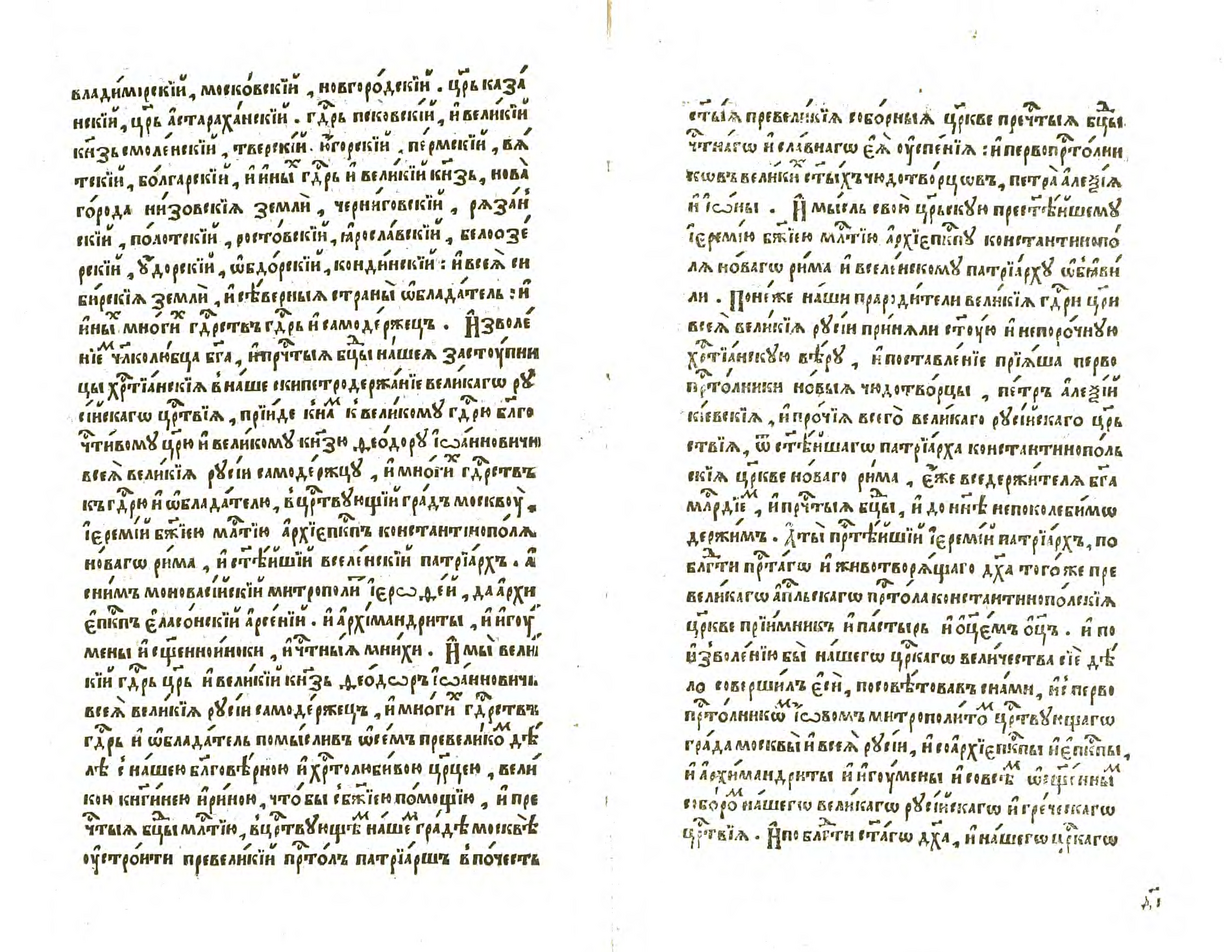 владимі́рскїй, моско́вскїй, новгоро́дскїй. цр҃ь каза́
нскїй, цр҃ь а҆страха́нскїй. гдⷭ҇рь пско́вскїй, и҆ вели́кїй
кн҃зь смоле́нскїй, тверскі́й. ю҆го́рскїй, пе́рмскїй, вѧ́
тскїй, бо́лгарскїй, и҆ и҆ны́ⷯ гдⷭ҇рь и҆ вели́кїй кн҃зь, но́ва
го́рода низо́вскїѧ землѝ, черни́говскїй, рѧза́н
скїй, по́лотскїй, росто́вскїй, ꙗ҆росла́вскїй, бѣлоозе́
рскїй, ᲂу҆до́рскїй, ѡ҆бдо́рскїй, конди́нскїй: и҆ всеѧ̀ си
би́рскїѧ землѝ, и҆ сѣ́верныѧ страны̀ ѡ҆блада́тель: и҆
и҆ны́ⷯ мно́гиⷯ гдⷭ҇рствъ гдⷭ҇рь и҆ самоде́ржецъ. И҆зволе́
нїеⷨ чл҃колю́бца бг҃а, и҆ прчⷭ҇тыѧ бц҃ы на́шеѧ застꙋ́пни
цы хрⷭ҇тїа́нскїѧ в на́ше скипетродержа́нїе вели́кагѡ рꙋ
сі́йскагѡ црⷭ҇твїѧ, прїи́де к на́ⷨ к вели́комꙋ гдⷭ҇рю бл҃го
чⷭ҇ти́вомꙋ цр҃ю и҆ вели́комꙋ кн҃зю ѳео́дорꙋ і҆ѡа́нновичю
всеѧ̀ вели́кїѧ рꙋсі́и самоде́ржцꙋ, и҆ мно́гиⷯ гдⷭ҇рствъ
къ гдⷭ҇рю и҆ ѡ҆блада́телю, в црⷭ҇твꙋющїй гра́дъ москвꙋ̀.
і҆еремі́й бж҃їею млⷭ҇тїю а҆рхїепⷭ҇кпъ константинопо́лѧ
но́вагѡ ри́ма, и҆ ст҃ѣ́йшїй вселе́нскїй патрїа́рхъ. а҆
с ни́мъ моновасі́йскїй митрополи́т і҆ерѡѳе́й, да а҆рхи
є҆пⷭ҇кпъ є҆ласо́нскїй а҆рсе́нїй. и҆ а҆рхїмандри́ты, и҆ и҆гꙋ́
мены и҆ сщ҃е́нноиноки, и҆ чⷭ҇тныѧ мни́хи. И҆ мы̀ вели́
кїй гдⷭ҇рь цр҃ь и҆ вели́кїй кн҃зь ѳео́дѡръ і҆ѡа́нновичь
всеѧ̀ вели́кїѧ рꙋсі́и самоде́ржецъ, и҆ мно́гиⷯ гдⷭ҇рствъ
гдⷭ҇рь и҆ ѡ҆блада́тель помы́сливъ ѡ҆ се́мъ превели́коⷨ дѣ́
лѣ с на́шею бл҃говѣ́рною и҆ хрⷭ҇толюби́вою цр҃цею, вели́
кою кн҃ги́нею и҆ри́ною, что́бы с бж҃їею по́мощїю, и҆ пре
чⷭ҇тыѧ бц҃ы млⷭ҇тїю, в црⷭ҇твꙋющеⷨ на́шеⷨ гра́дѣ москвѣ̀
ᲂу҆стро́ити превели́кїй прⷭ҇то́лъ патрїа́ршъ в по́честь
ст҃ы́ѧ превели́кїѧ собо́рныѧ цр҃кве пречⷭ҇тыѧ бц҃ы
чⷭ҇тна́гѡ и҆ сла́внагѡ є҆ѧ̀ ᲂу҆спе́нїѧ: и҆ первопрⷭ҇то́лни
кѡвъ вели́киⷯ ст҃ы́хъ чюдотво́рцѡвъ, петра̀ а҆леѯі́ѧ
и҆ і҆ѡ́ны. И҆ мы́сль свою̀ цр҃ьскꙋю прест҃ѣ́йшемꙋ
і҆еремі́ю бж҃їею млⷭ҇тїю а҆рхїепⷭ҇кпꙋ константинопо́
лѧ но́вагѡ ри́ма и҆ вселе́нскомꙋ патрїа́рхꙋ ѡ҆бѧви́
ли. Поне́же на́ши прароди́тели вели́кїѧ гдⷭ҇ри цр҃и
всеѧ̀ вели́кїѧ рꙋсі́и прина́ли ст҃ꙋ́ю и҆ непоро́чнꙋю
хрⷭ҇тїа́нскꙋю вѣ́рꙋ, и҆ поставле́нїе прїѧ́ша перво
прⷭ҇то́лники но́выѧ чюдотво́рцы, пе́тръ а҆леѯі́й
кі́евскїѧ, и҆ про́чїѧ всего̀ вели́каго рꙋсі́йскаго цр҃ь
ствїѧ, ѿ ст҃ѣ́йшагѡ патрїа́рха константинопо́ль
скїѧ цр҃кве но́ваго ри́ма, є҆́же вседержи́телѧ бг҃а
млⷭ҇рдїеⷨ, и҆ прчⷭ҇тыѧ бц҃ы, и҆ до нн҃ѣ непоколеби́мѡ
держи́мъ. А҆ ты̀ прⷭ҇тѣ́йшїй і҆еремі́й патрїа́рхъ, по
блг҃ти прⷭ҇та́гѡ и҆ животворѧ́щаго дх҃а того́же пре
вели́кагѡ а҆пⷭ҇льскагѡ прⷭ҇то́ла константинопо́лскїѧ
цр҃кве прїи́мникъ и҆ па́стырь и҆ ѻ҆ц҃е́мъ ѻ҆ц҃ъ. и҆ по
и҆зволе́нїю бы на́шегѡ црⷭ҇кагѡ вели́чества сїѐ дѣ́
ло соверши́лъ є҆сѝ, посовѣ́товавъ с на́ми, и҆ с перво
прⷭ҇то́лникоⷨ і҆ѡ́вомъ митрополи́тоⷨ црⷭ҇твꙋющагѡ
гра́да москвы̀ и҆ всеѧ̀ рꙋсі́и, и҆ со а҆рхїепⷭ҇кпы и҆ є҆пⷭ҇кпы,
и҆ а҆рхимандри́ты и҆ и҆гꙋ́мены и҆ со всѣ́ⷨ ѡ҆сщ҃е́нныⷨ
собо́роⷨ на́шегѡ вели́кагѡ рꙋсі́йскагѡ и҆ гре́ческагѡ
црⷭ҇твїѧ. И҆ по блг҃ти ст҃а́гѡ дх҃а, и҆ на́шегѡ црⷭ҇кагѡ